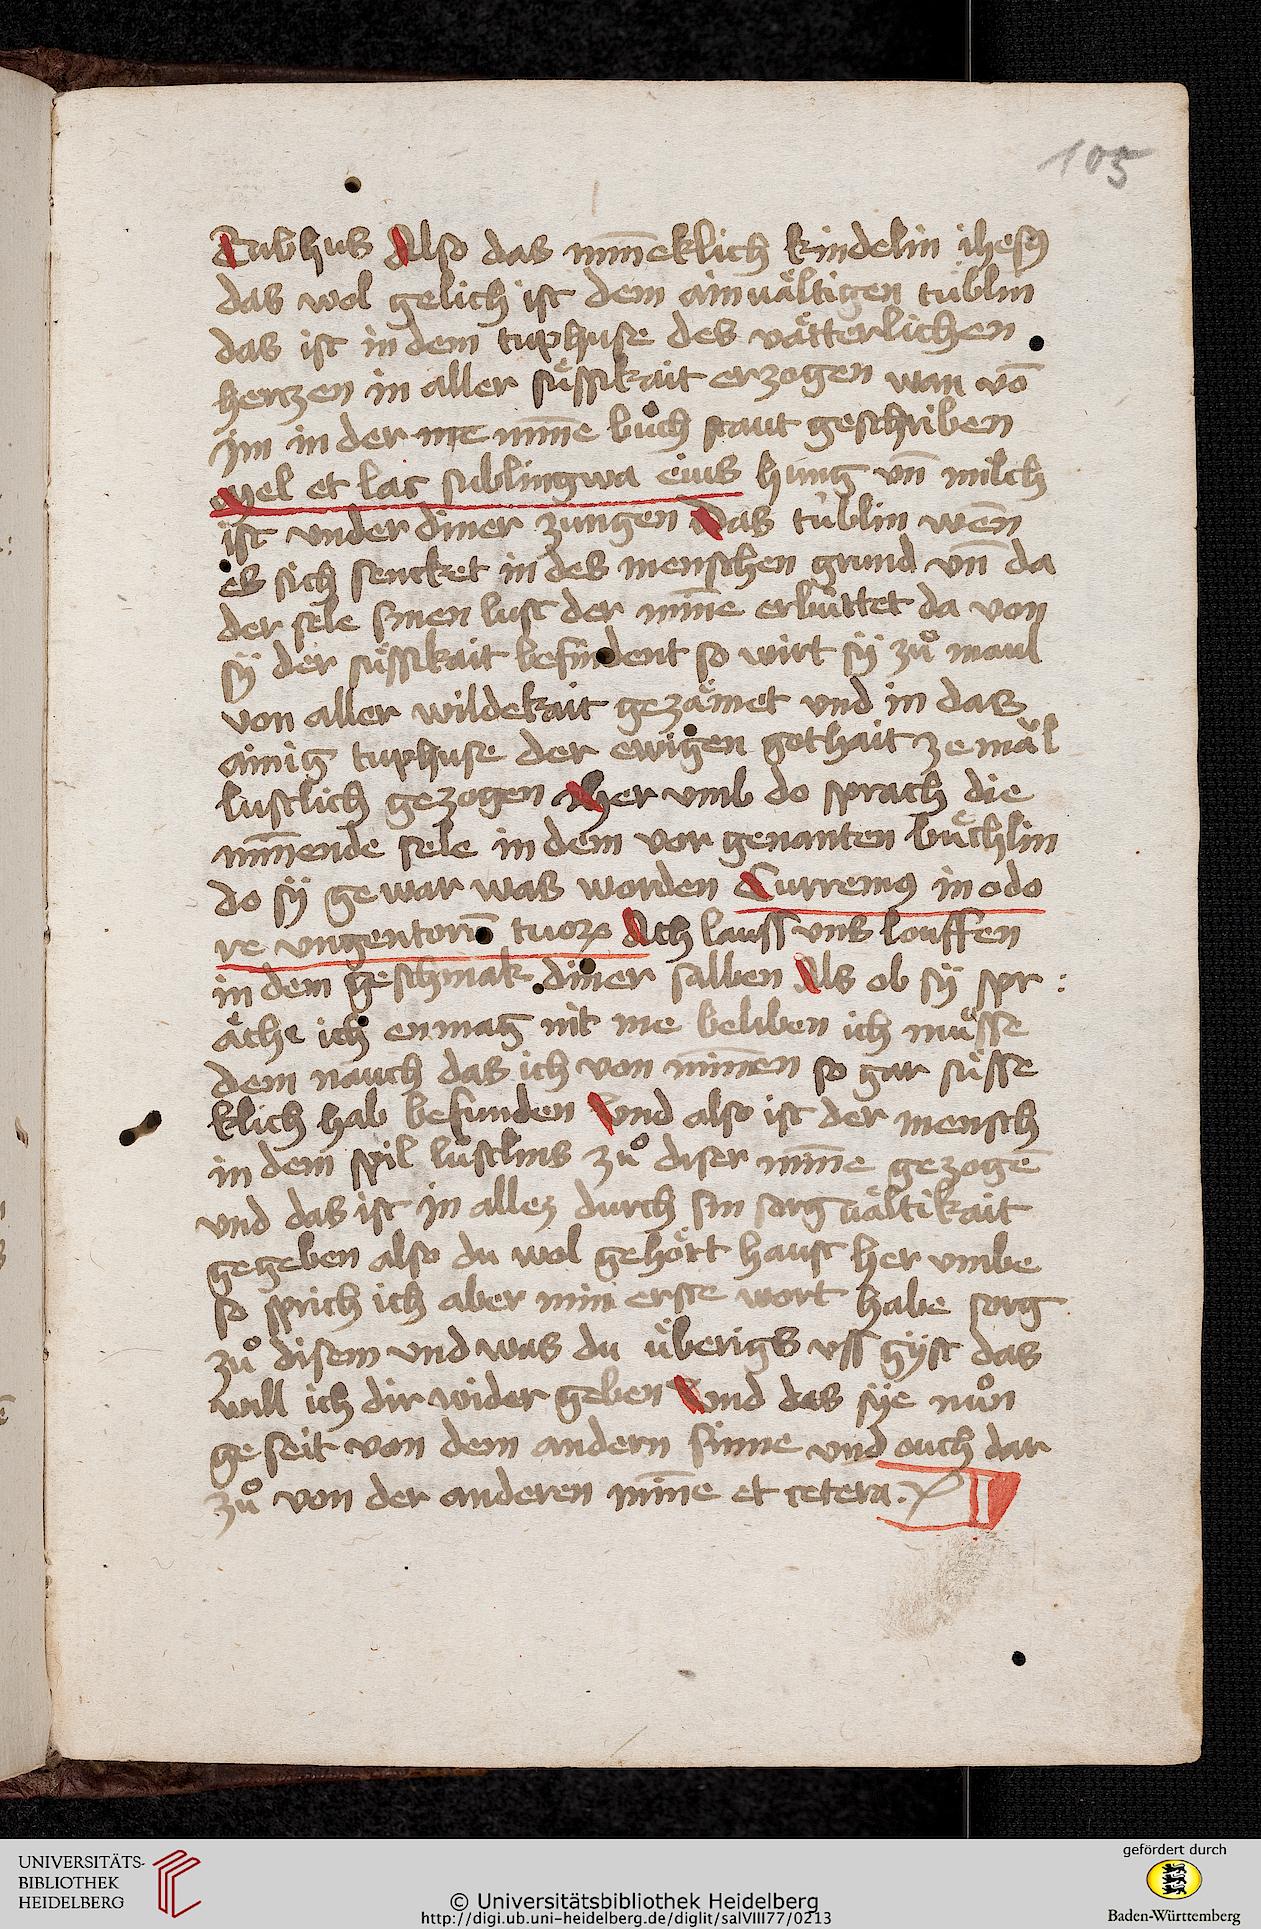 105
Tubhus Also das mīneklich kindelin ihesꝯ
das wol gelich ist dem ainuältigen tüblin
das ist in dem tuphuse des vätterlichen
hertzen in aller süssikait erzogen wan vō
im in der me mīne bůch staut geschriben
Mel et lac sublingwa eius hung vn̄ milch
ist vnder diner zungen Das tüblin wēn
es sich sencket in des menschen grund vn̄ da
der sele sinen lust der mīne erbüttet da von
sÿ der süssikait befindent so wirt sÿ zů maul
von aller wildekait gezämet vnd in das
ainig tuphuse der ewigen gothait ze mäl
lustlich gezogen Her vmb do sprach die
mīnende sele in dem vor genanten büchlin
do sÿ gewar was worden Curremꝯ in odo
re vngentorū tuoꝝ Ach lauss vns louffen
in dem geschmak diner salben Als ob sÿ spr :
äche ich enmag nit me beliben ich müsse
dem nauch das ich von mīnen so gar süsse
klich hab befunden Vnd also ist der mensch
in dem spil lustlins zů diser mīne gezogē
vnd das ist in allez durch sin sorguältikait
gegeben also du wol gehört haust her vmbe
so sprich ich aber min erste wort habe sorg
zů disem vnd was du überigs vss gÿst das
will ich dir wider geben Vnd das sÿe nůn
ge seit von dem andern sinne vnd ouch dar
zů von der anderen mīne et cetera.
UNIVERSITÄTS-
BIBLIOTHEK
HEIDELBERG
© Universitätsbibliothek Heidelberg
http://digi.ub.uni-heidelberg.de/diglit/salVIII77/0213
gefördert durch
Baden-Württemberg